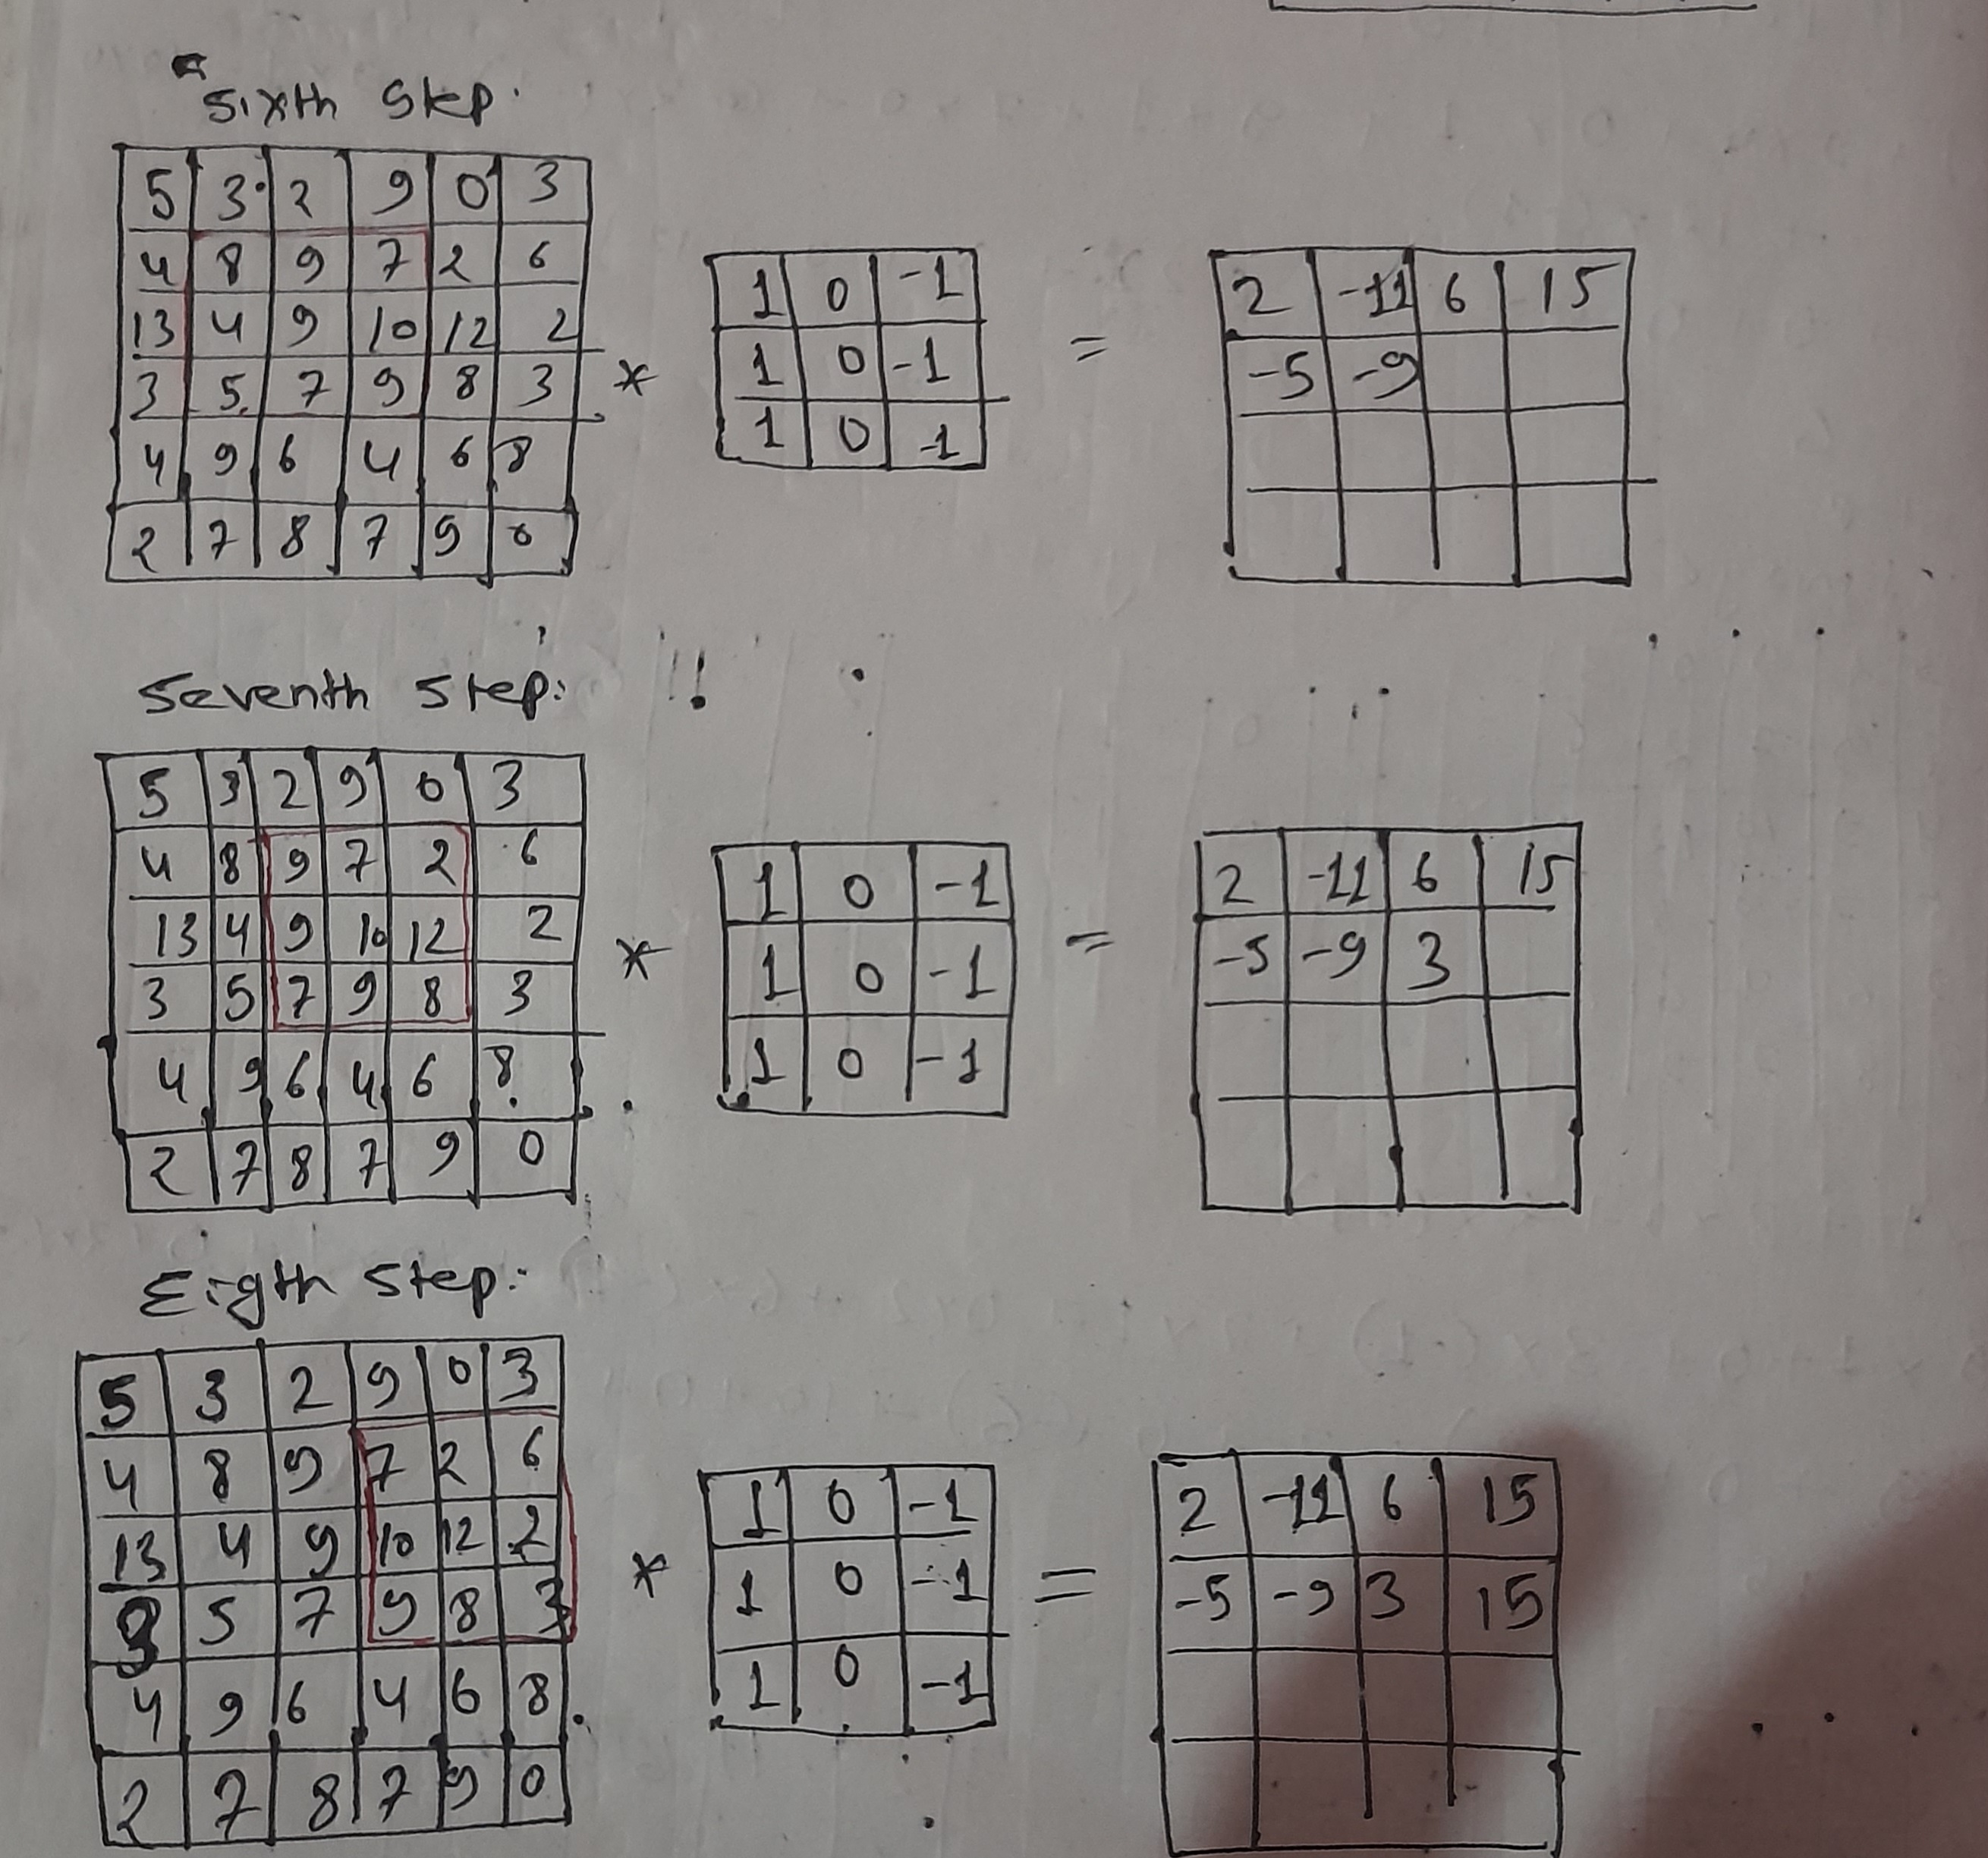 Sixth Step:
5 3 2 9 0 3
4 8 9 7 2 6
13 4 9 10 12 2
3 5 7 9 8 3
4 9 6 4 6 8
2 7 8 7 9 0
*
1 0 -1
1 0 -1
1 0 -1
=
2 -11 6 15
-5 -9
Seventh Step:
5 3 2 9 0 3
4 8 9 7 2 6
13 4 9 10 12 2
3 5 7 9 8 3
4 9 6 4 6 8
2 7 8 7 9 0
*
1 0 -1
1 0 -1
1 0 -1
=
2 -11 6 15
-5 -9 3
Eigth Step:
5 3 2 9 0 3
4 8 9 7 2 6
13 4 9 10 12 2
3 5 7 9 8 3
4 9 6 4 6 8
2 7 8 7 9 0
*
1 0 -1
1 0 -1
1 0 -1
=
2 -11 6 15
-5 -9 3 15